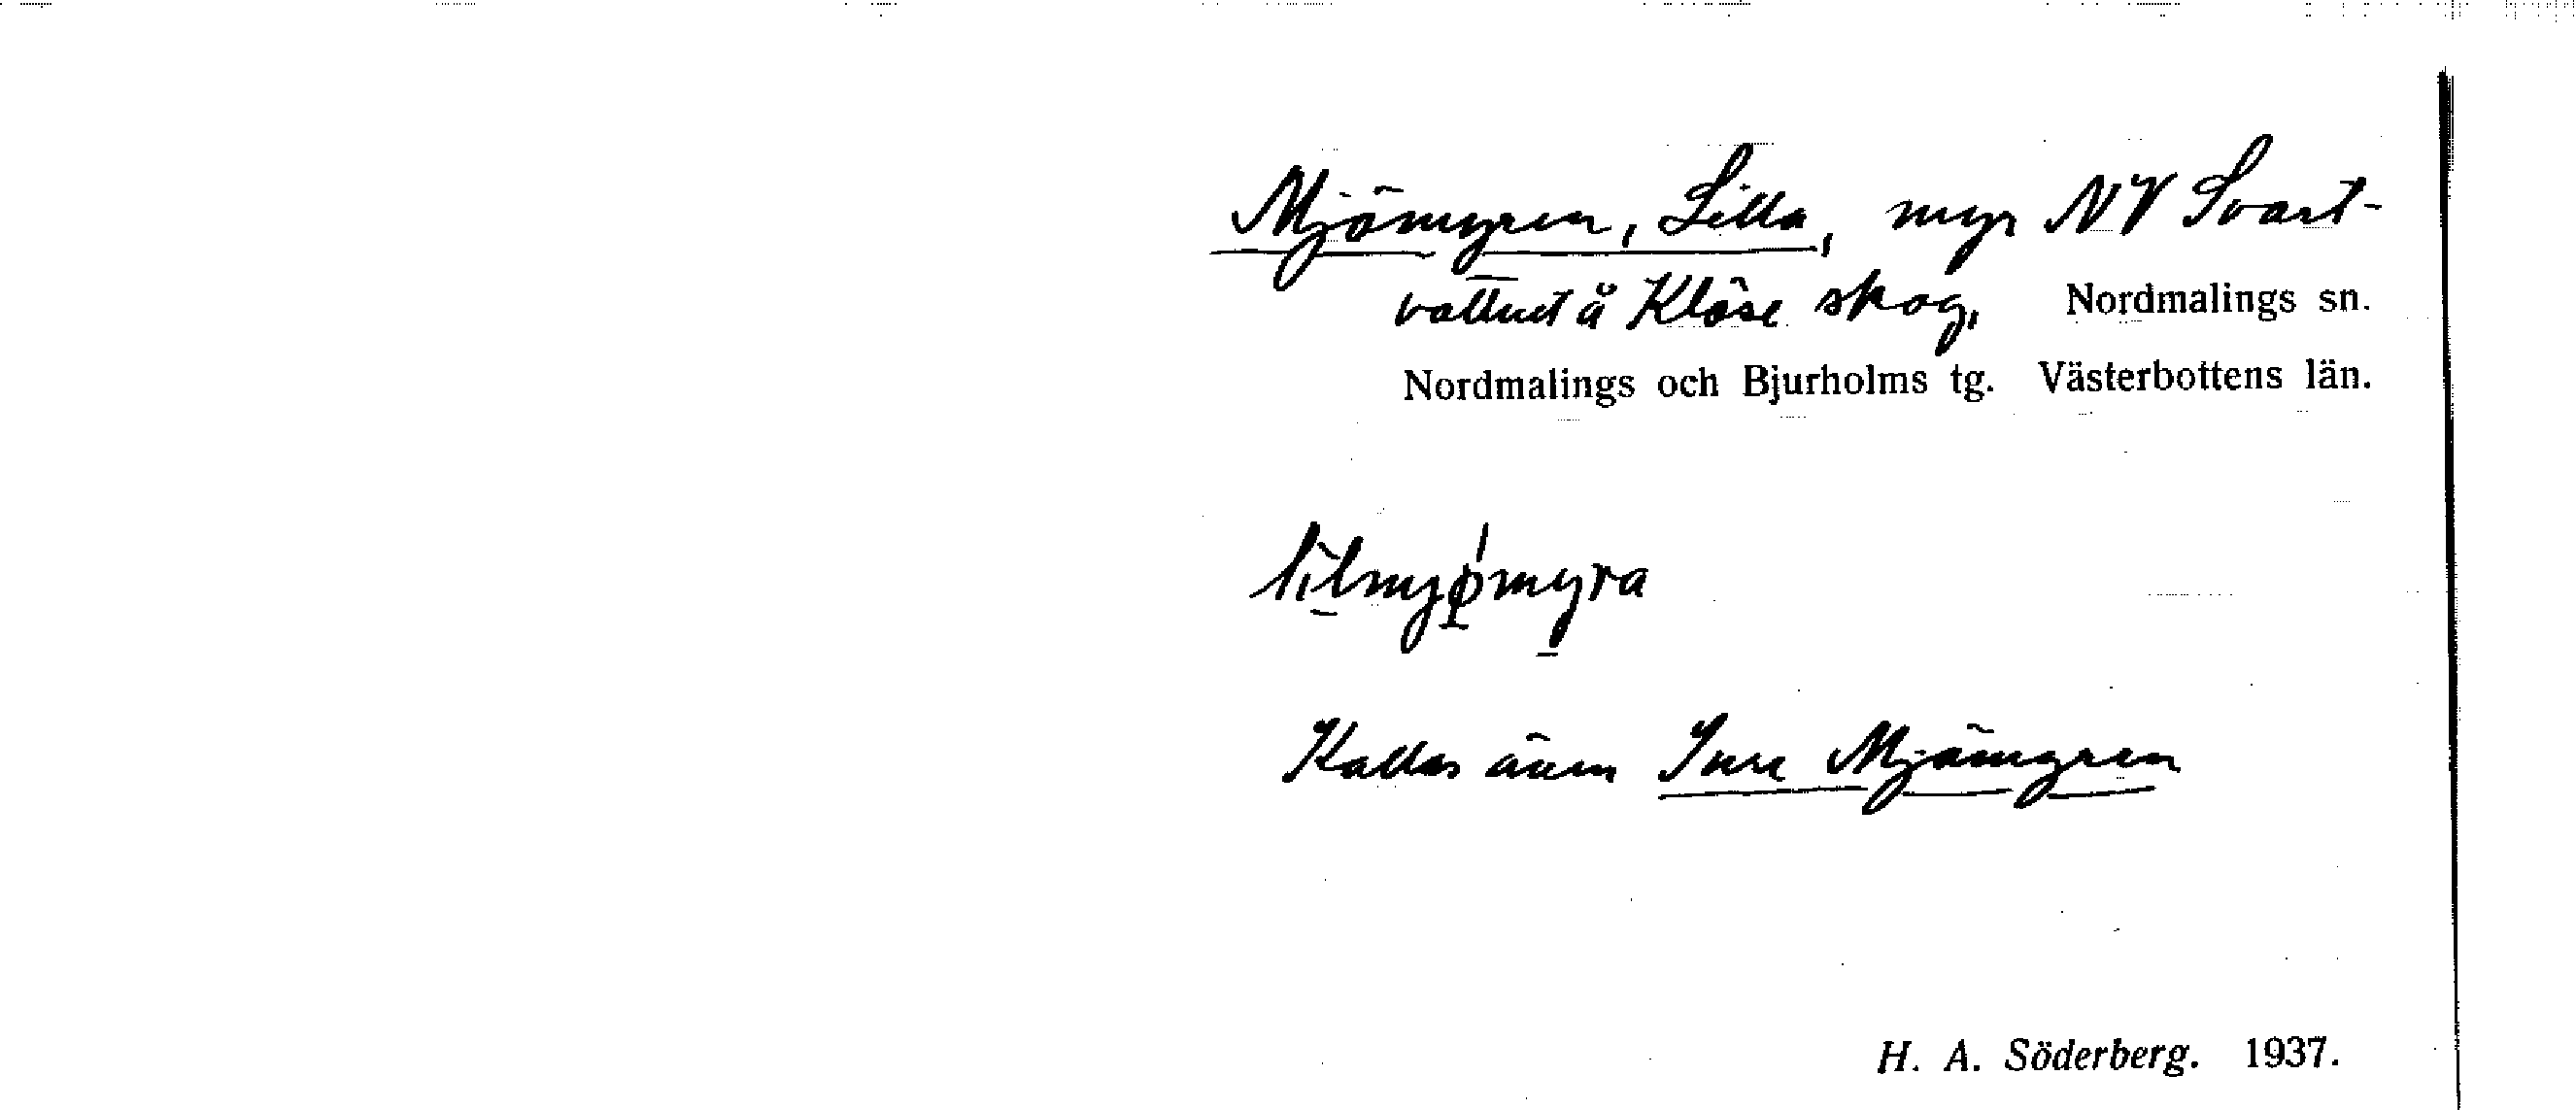 Mjömyren, Lilla, myr NV Svart-
vattnet å Klöse skog, Nordmalings sn.
Nordmalings och Bjurholms tg. Västerbottens län.
lilmjømyra
Kallas även Inre Mjömyren
H. A. Söderberg. 1937.